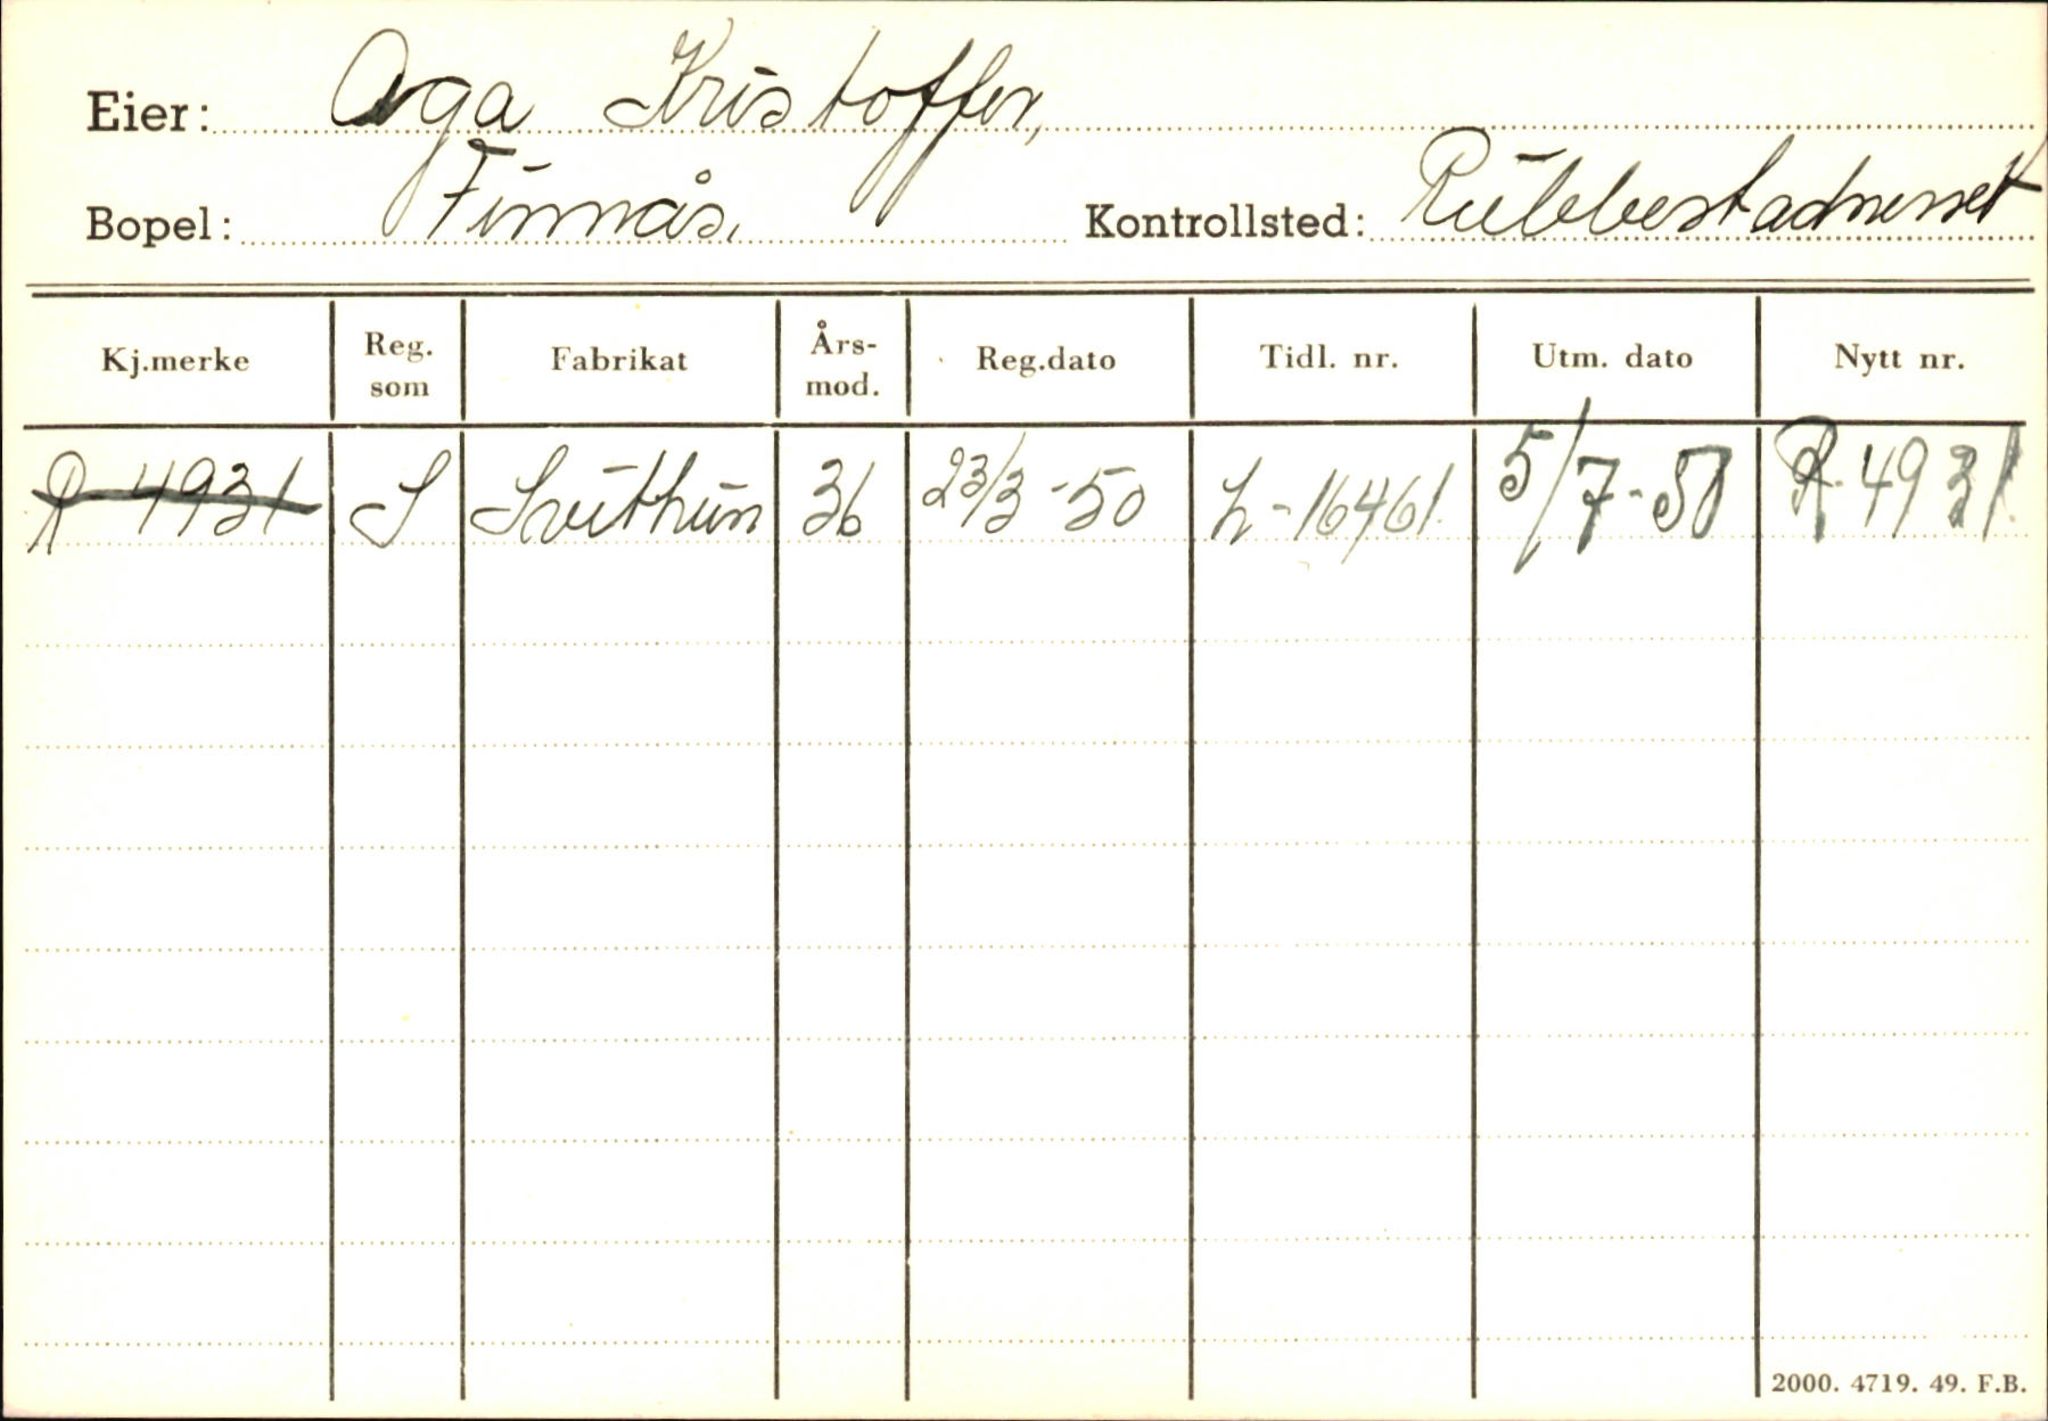 Eier: Aga Kristoffer,
Bopel: Finnås. Kontrollsted: Rubbestadnesset
Kj.merke Reg. som Fabrikat Års-mod. Reg.dato Tidl. nr. Utm. dato Nytt nr.
R-4931 S Svithun 36 23/3-50 L-16461. 5/7-50 R-4931.
2000. 4719. 49. F.B.